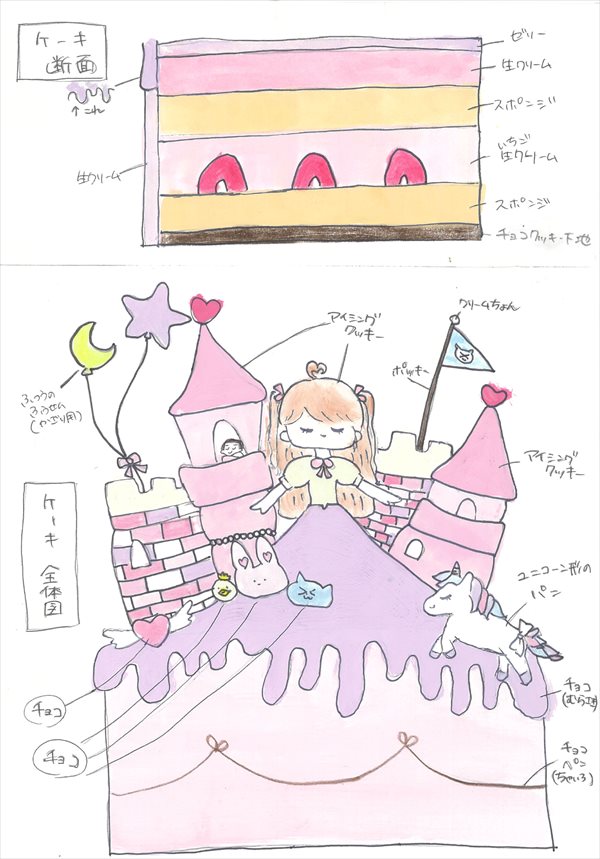 ケーキ
(断面)
↑これ
生クリーム
ゼリー
生クリーム
スポンジ
いちご
生クリーム
スポンジ
チョコクッキー下地
アイシング
クッキー
クリームちょん
ポッキー
ふつうの
ふうせん
(かざり用)
アイシング
クッキー
ケーキ 全体図
ユニコーン形の
パン
チョコ
チョコ
チョコ
(むらさき)
チョコ
ペン
(ちゃいろ)